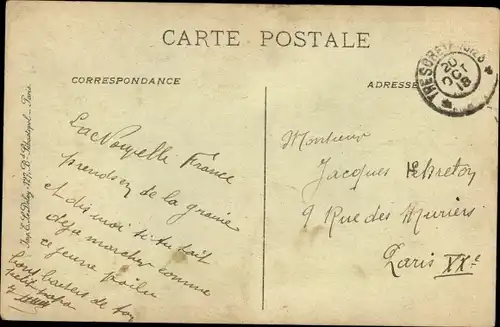 CARTE POSTALE
CORRESPONDANCE
ADRESSE
TRESOR ET
20
OCT
18
La Nouvelle France
prends en de la graine
et dis moi si tu fait
déjà marcher comme
ce jeune poilu
bons baisers de ton
petit papa
Monsieur
Jacques Lebreton
9 Rue des Muriers
Paris XXe
Imp. E. Le Deley, 127, Bd Sébastopol - Paris